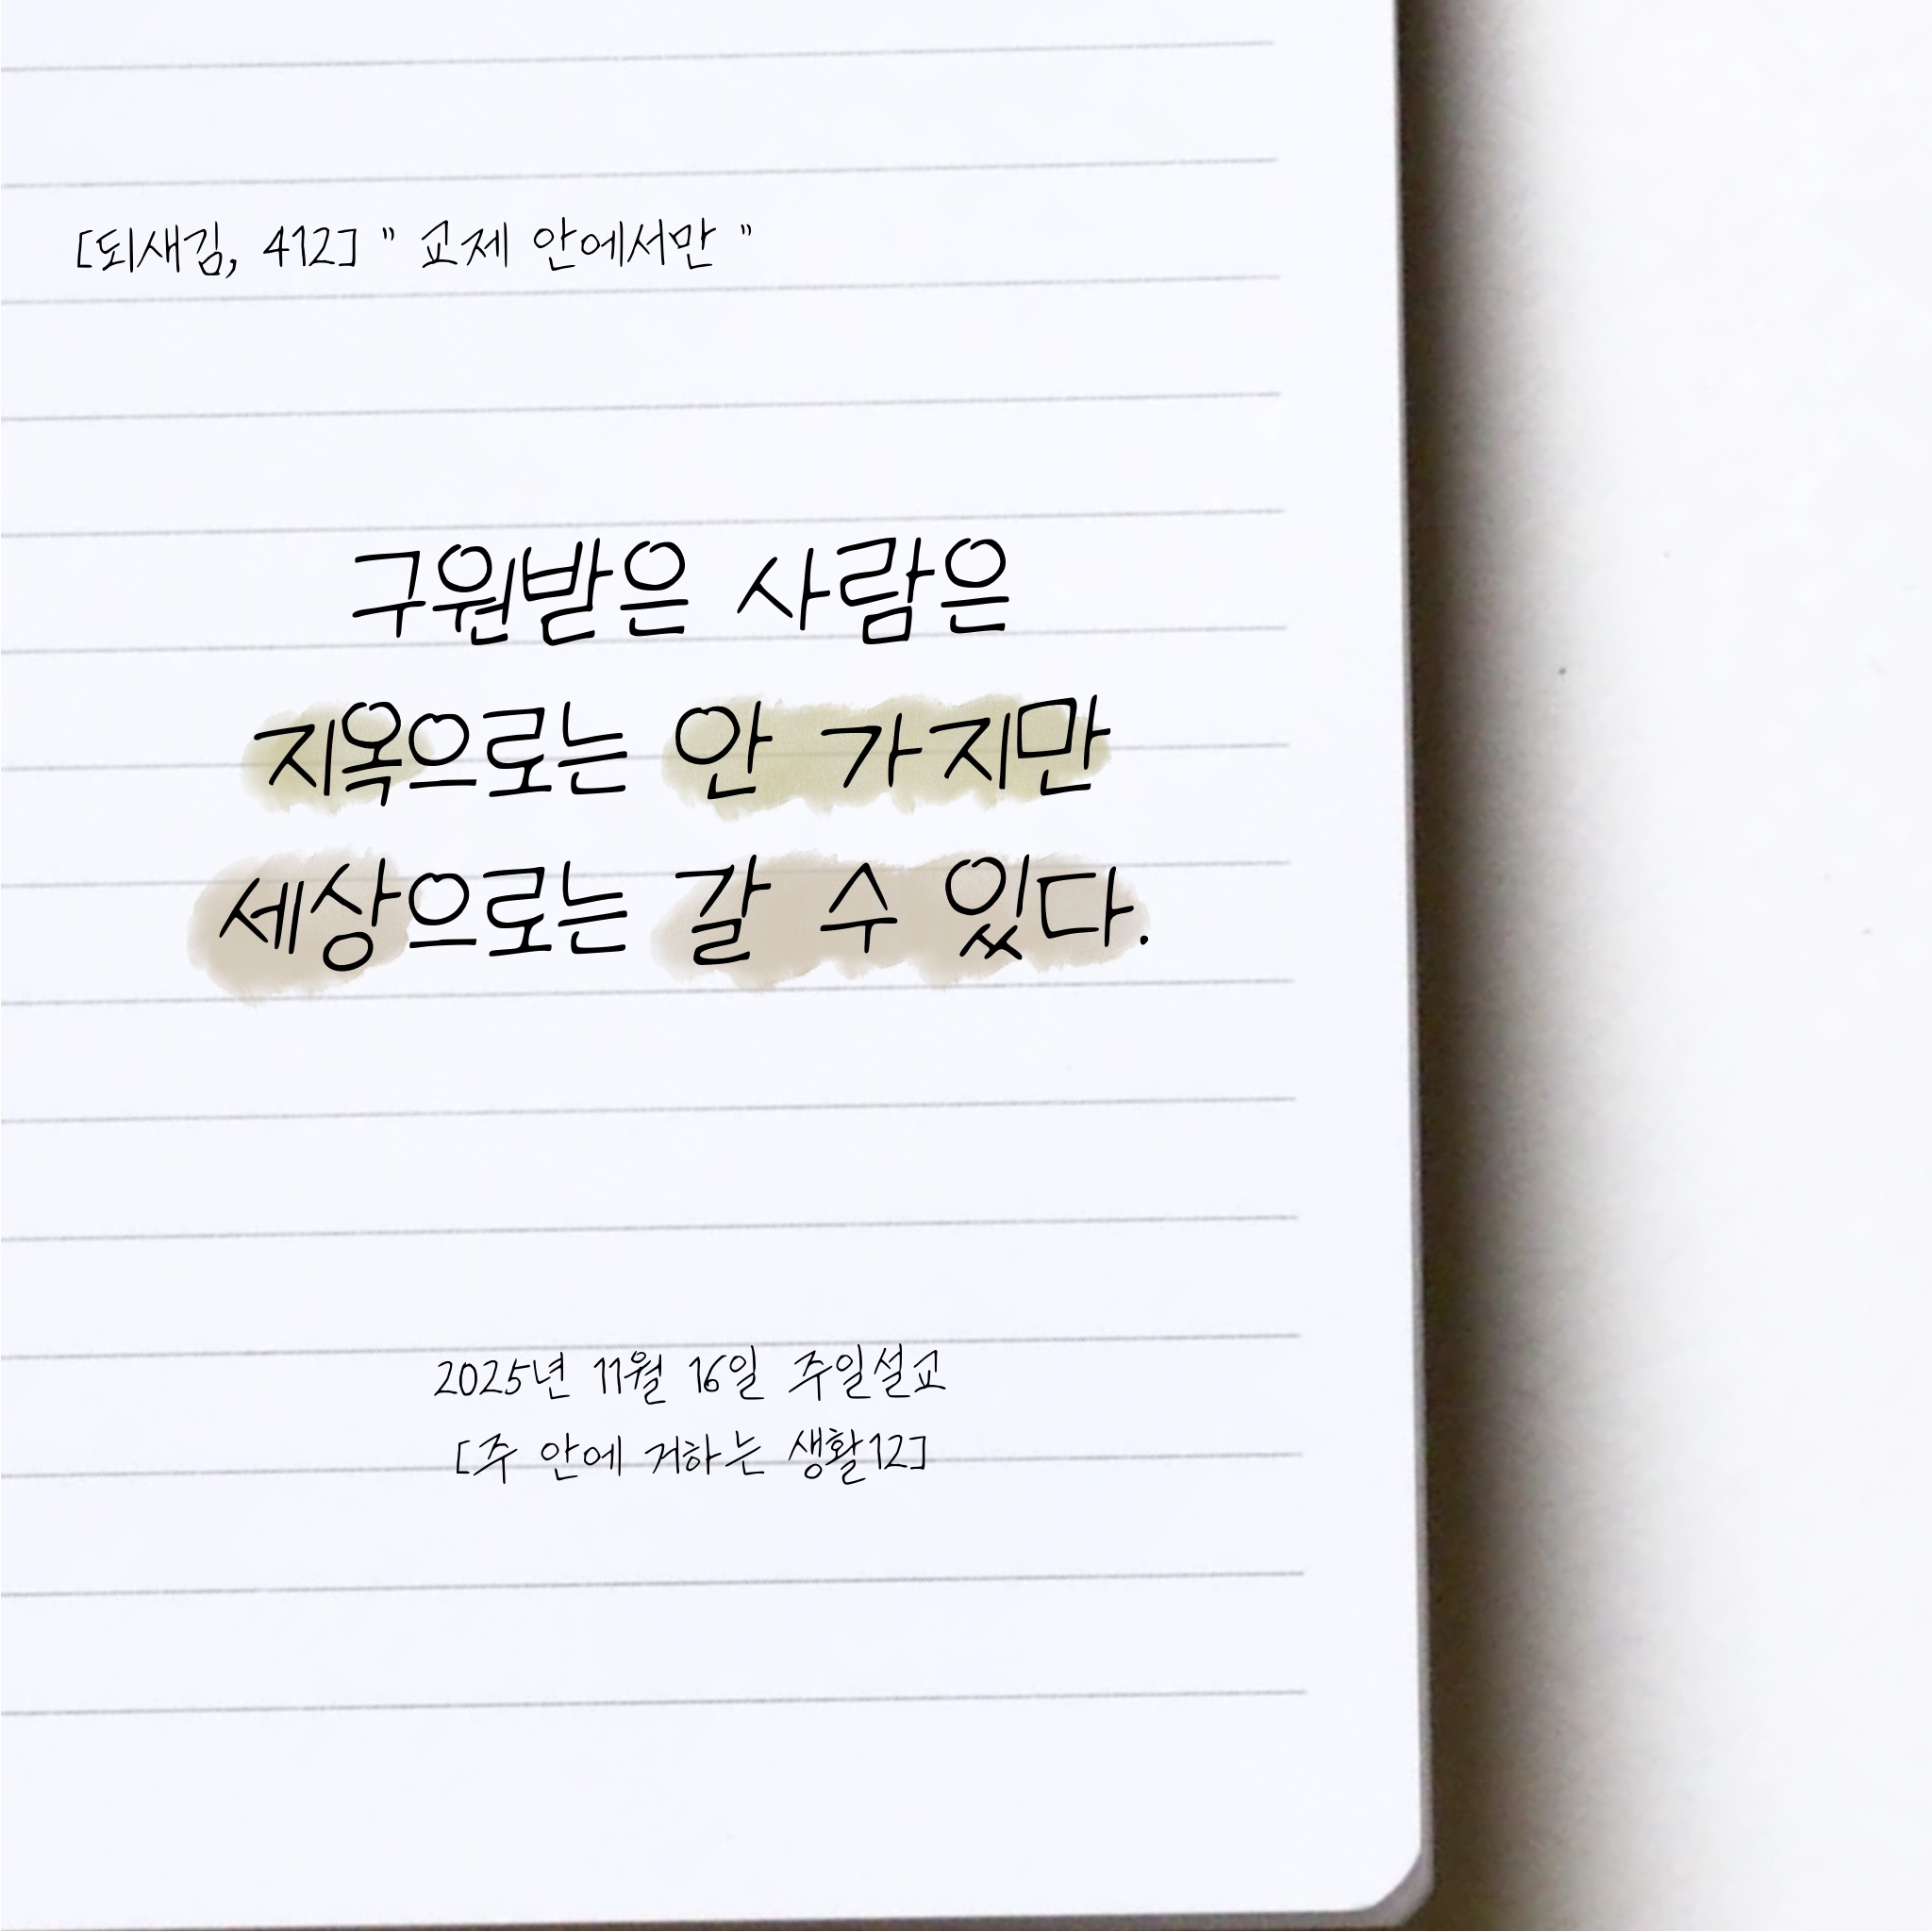 [되새김, 412] " 교제 안에서만 "
구원받은 사람은
지옥으로는 안 가지만
세상으로는 갈 수 있다.
2025년 11월 16일 주일설교
[주 안에 거하는 생활12]